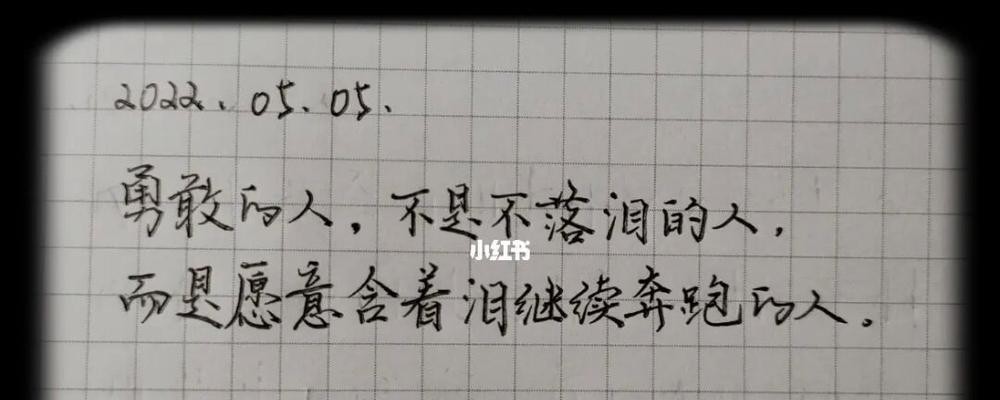 2022.05.05.
勇敢的人，不是不落泪的人，
小红书
而是愿意含着泪继续奔跑的人。